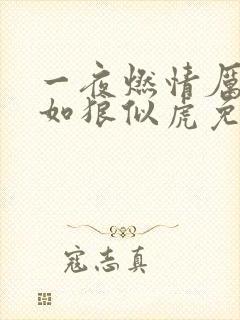 一夜燃情厲
如狼似虎免
寇志真